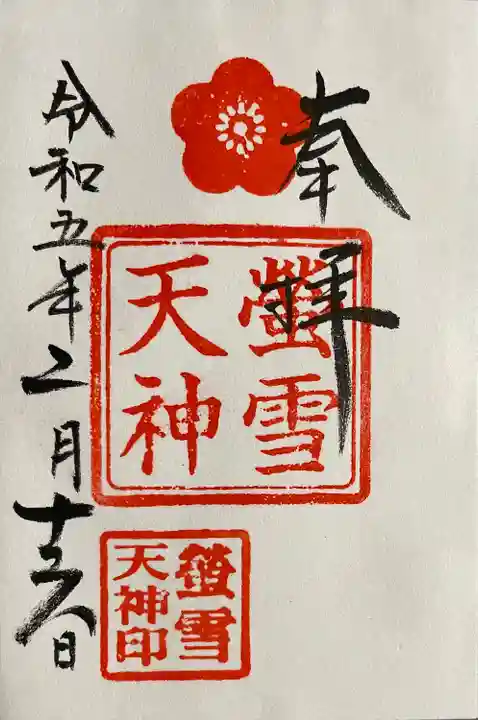 奉拝
螢雪
天神
螢雪
天神印
令和五年二月十六日